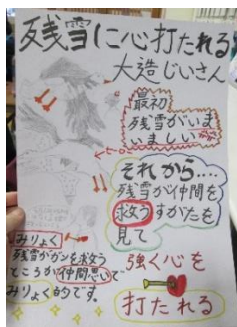 残雪に心打たれる
大造じいさん
最初
残雪がいま
いましい
それから‥‥
残雪が仲間を
救うすがたを
見て
強く心を
打たれる
みりょく
残雪がガンを救う
ところが仲間思いで
みりょく的です。